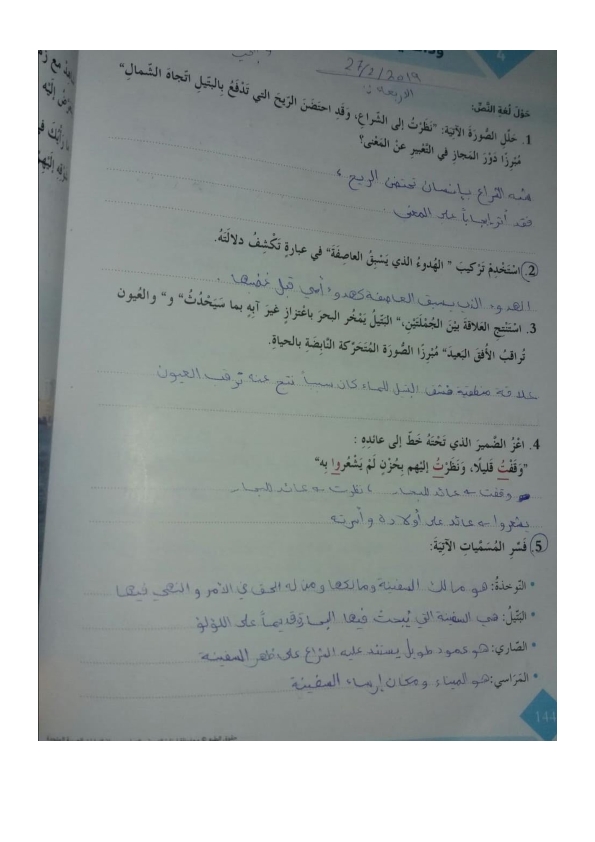 27/2/2019
الاربعاء
4
حَوْلَ لُغَةِ النَّصِّ:
1. حَلِّلِ الصُّورَةَ الآتِيَةَ: "نَظَرْتُ إلى الشِّراعِ، وَقَدِ احتَضَنَ الرّيحَ التي تَدْفَعُ بِالبَتّيلِ اتِّجاهَ الشَّمالِ"
مُبْرِزًا دَوْرَ المَجازِ في التَّعْبيرِ عنِ المَعْنى؟
شبه الشراع بإنسان يحتضن الريح
فقد أثر إيجاباً على المعنى
2. اسْتَخْدِمْ تَرْكيبَ " الهُدوءُ الذي يَسْبِقُ العاصِفَةَ" في عبارةٍ تَكْشِفُ دلالَتَهُ.
الهدوء الذي يسبق العاصفة كهدوء أمي قبل غضبها .
3. اسْتَنْتِجِ العَلاقةَ بَيْنَ الجُمْلَتَيْنِ،" البَتّيلُ يَمْخُر البحرَ باعْتزازٍ غيرَ آبِهٍ بما سَيَحْدُثُ" و" والعُيون
تُراقبُ الأُفقَ البَعيدَ" مُبْرِزًا الصُّورَة المُتَحَرِّكة النّابِضَةِ بالحياةِ.
علاقة منطقية فشق البتيل للماء كان سبباً نتج عنه ترقب العيون
4. اعْزُ الضَّميرَ الذي تَحْتَهُ خَطٌّ إلى عائدِهِ :
"وَقَفْتُ قَليلًا، وَنَظَرْتُ إلَيْهِم بِحُزْنٍ لَمْ يَشْعُروا بِه"
وقفت ← عائد للبحار ، نظرت ← عائد للبحار
يشعروا ← عائد على أولاده وأسرته
5. فَسِّرِ المُسَمَّياتِ الآتِيَةَ:
• النّوخذةُ: هو مالك السفينة ومالكها ومن له الحق في الأمر والنهي فيها
• البَتّيلُ: هي السفينة التي يُبحث فيها البحارة قديماً على اللؤلؤ
• الصّاري: هو عمود طويل يستند عليه الشراع على ظهر السفينة
• المَراسي: هو الميناء ومكان إرساء السفينة
144